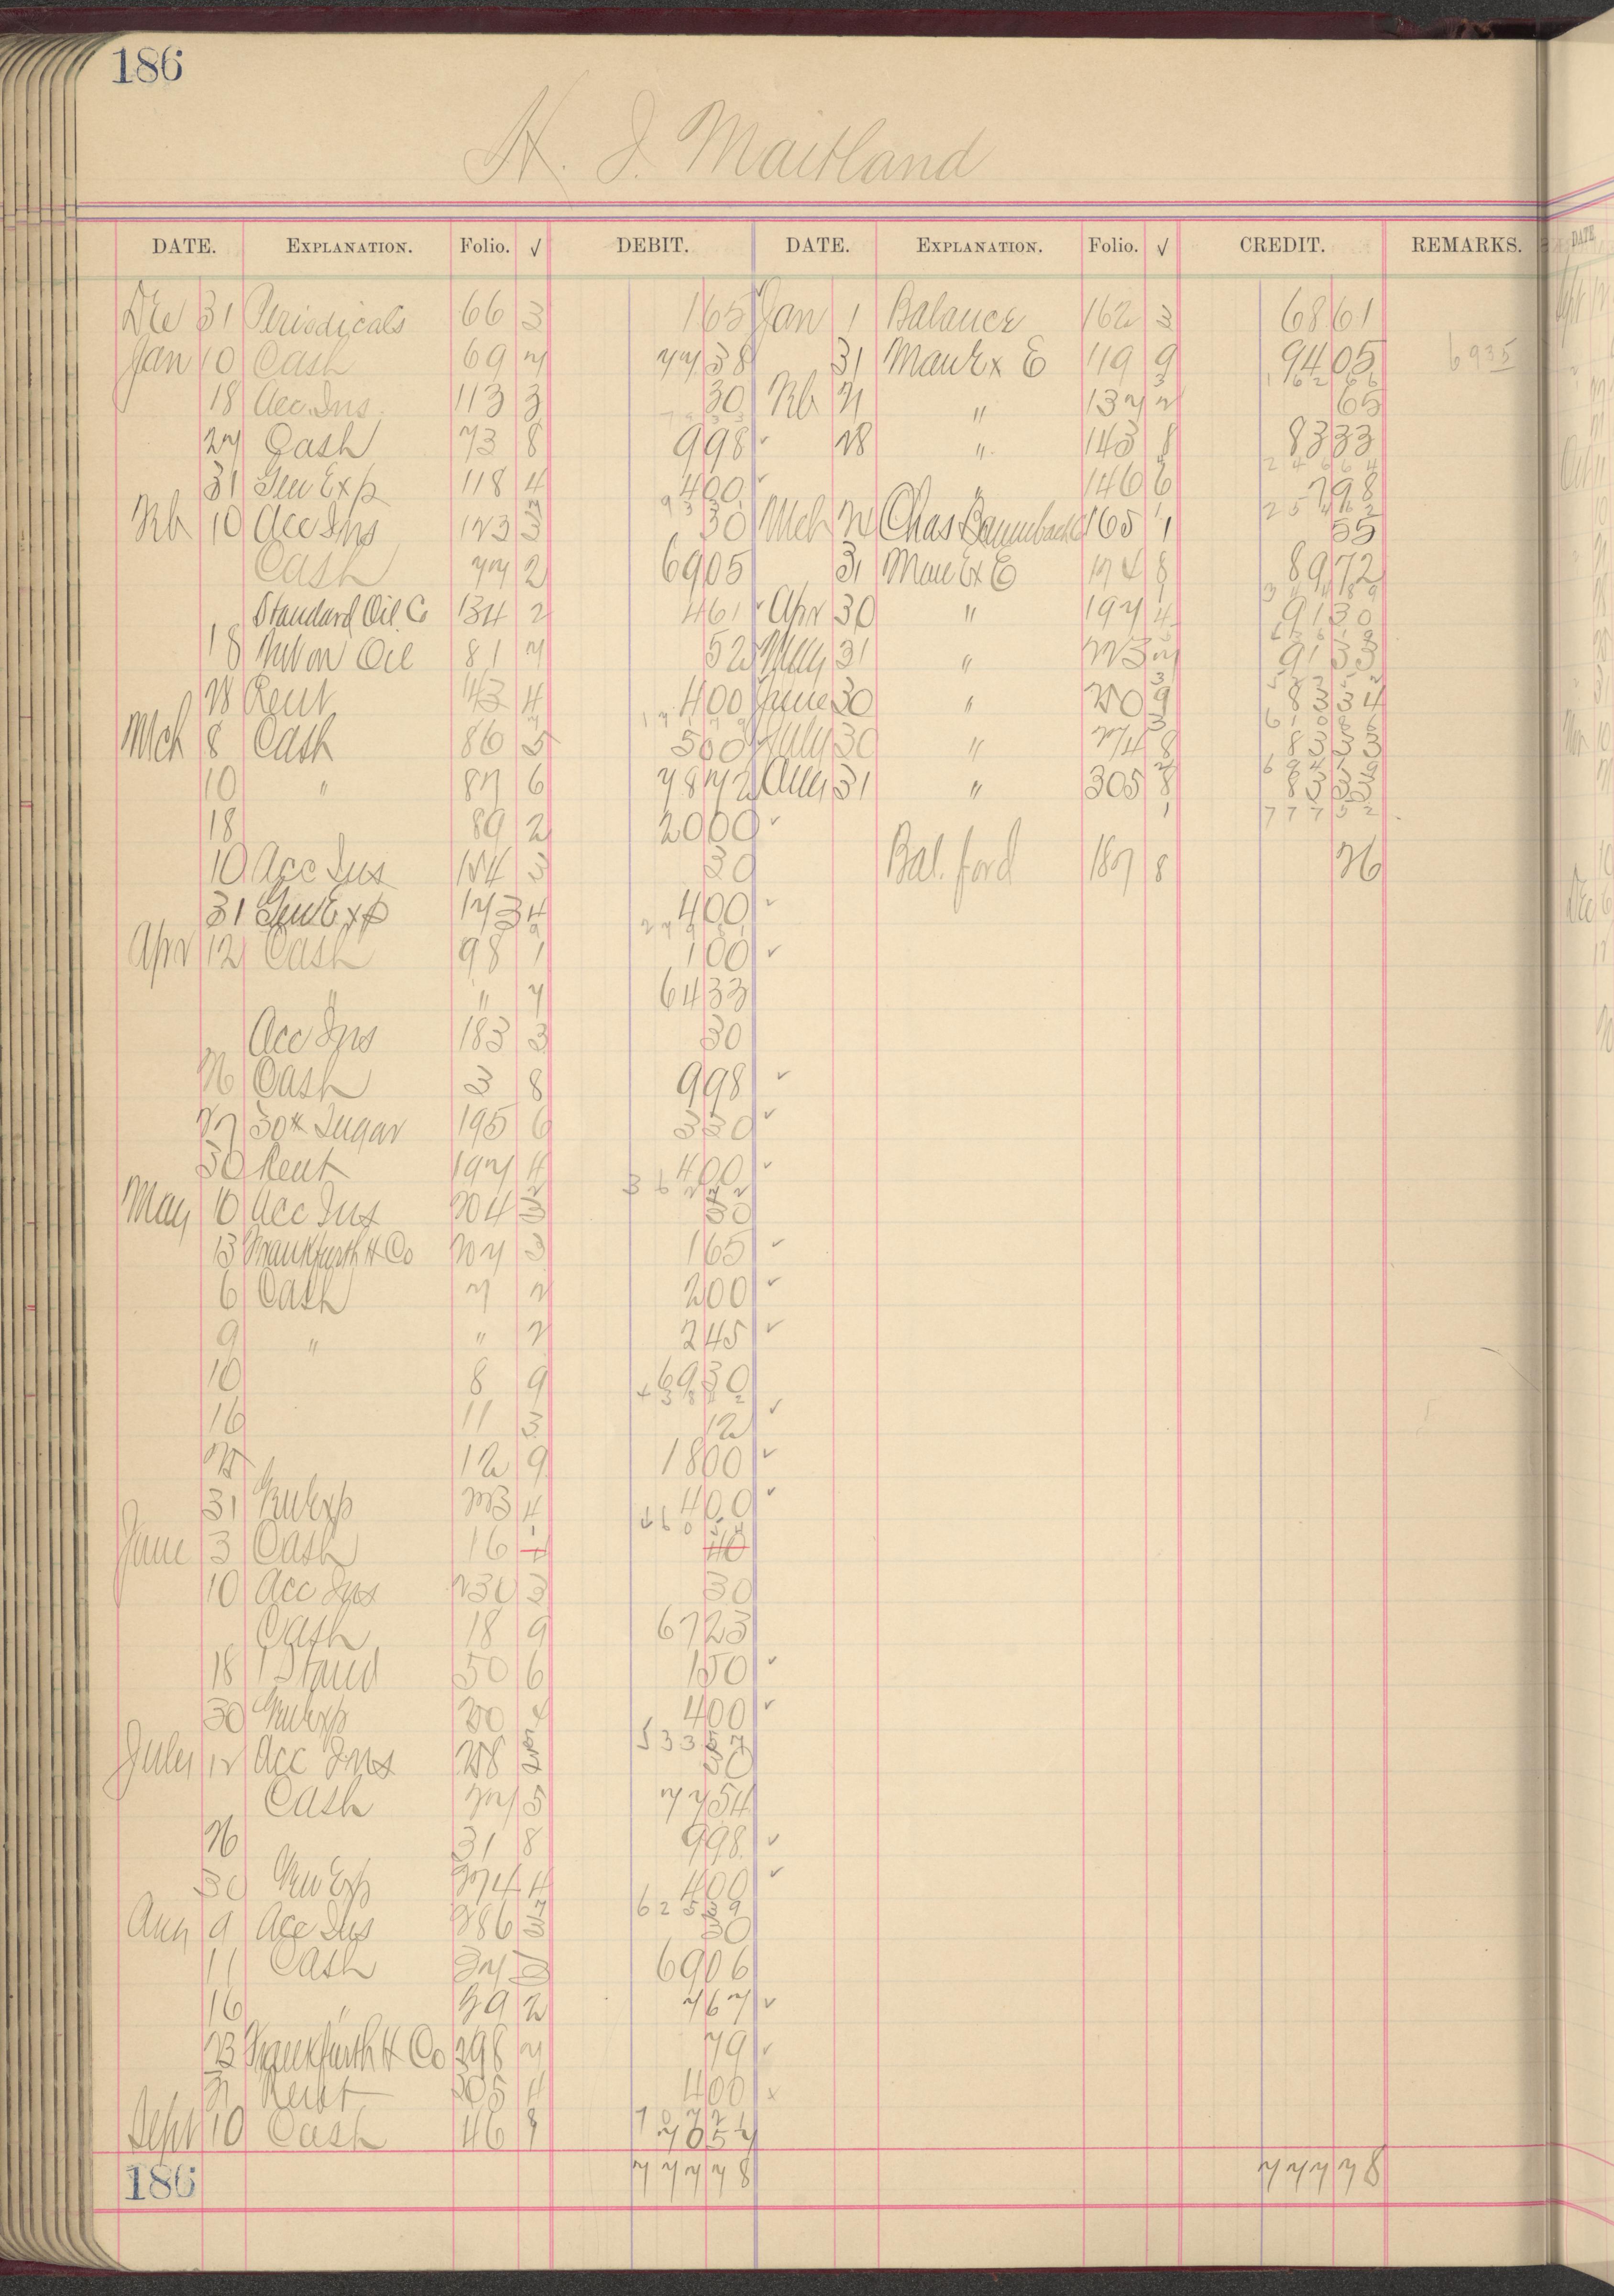 186
H. J. Maitland
DATE. EXPLANATION. Folio. √ DEBIT. DATE. EXPLANATION. Folio. √ CREDIT. REMARKS.
Dec 31 Periodicals 66 3 1 65 Jan 1 Balance 162 3 68 61
Jan 10 Cash 69 7 77 38 31 Man Ex E 119 9 94 05 69 35
18 Acc Ins 113 3 30 Feb 2 " 137 2 65
162 66
27 Cash 73 8 9 98 ✓ 28 " 143 8 83 33
246 64
31 Gen Exp 118 4 4 00 ✓ " 146 6 7 98
254 62
Feb 10 Acc Ins 123 3 30 Mch 21 Chas 165 1 55
Cash 77 2 69 05 31 Man Ex E 174 8 89 72
Standard Oil Co 134 2 4 61 ✓ Apr 30 " 197 4 91 30
18 Oil 81 7 52 May 31 " 223 7 91 33
28 Rent 143 4 4 00 June 30 " 250 9 83 34
610 86
Mch 8 Cash 86 5 5 00 July 30 " 274 8 83 33
694 19
10 " 87 6 78 72 Aug 31 " 305 8 83 33
777 52
18 89 2 20 00 ✓
10 Acc Ins 154 3 30 Bal. ford 187 8 26
31 Gen Exp 173 4 4 00 ✓
Apr 12 Cash 98 1 1 00 ✓
" " 7 64 33
Acc Ins 183 3 30
26 Cash 3 8 9 98 ✓
27 30# Sugar 195 6 3 30 ✓
30 Rent 197 4 4 00 ✓
362 72
May 10 Acc Ins 204 3 30
13 Frankfurth H Co 207 3 1 65 ✓
6 Cash 7 2 2 00 ✓
9 " " 2 2 45 ✓
10 8 9 69 30
16 11 3 12 ✓
25 12 9 18 00 ✓
31 Gen Exp 223 4 4 00 ✓
June 3 Cash 16 4 40
10 Acc Ins 230 3 30
Cash 18 9 67 23
18 1 Stand 50 6 1 50 ✓
30 Gen Exp 250 4 4 00 ✓
533 57
July 12 Acc Ins 258 3 30
Cash 27 5 77 54
26 31 8 9 98 ✓
30 Gen Exp 274 4 4 00 ✓
625 39
Aug 9 Acc Ins 286 3 30
11 Cash 37 69 06
16 " 39 2 7 67 ✓
23 Frankfurth H Co 298 7 79 ✓
31 Rent 305 4 4 00 ×
707 21
Sept 10 Cash 46 9 70 57
186 777 78 777 78